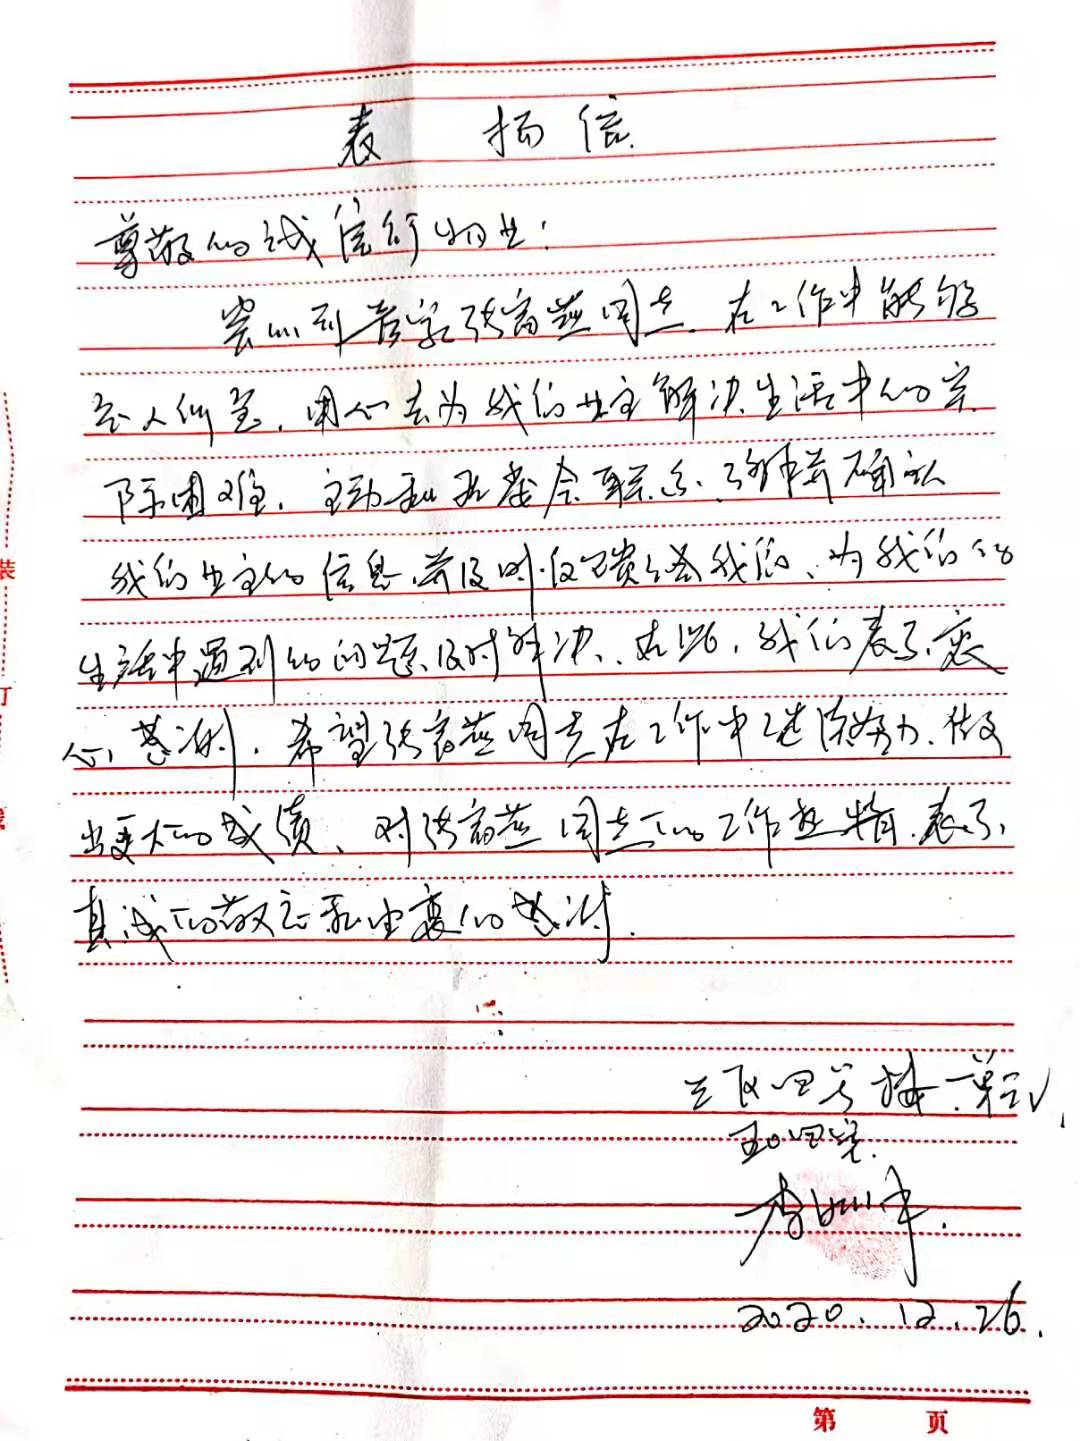 表 扬信
尊敬的诚信行物业:
客心到管家张富燕同志.在工作中能够
用心去为我们业主解决生活中的实
际困难,主动和居委会联系、了解并确认
我们业主的信息、并及时反馈给我们、为我们的
生活中遇到的问题及时解决、在此,我们表示衷
心感谢,希望张富燕同志在工作中继续努力、做
出更大的成绩、对张富燕同志的工作热情、表示
真诚的敬意和由衷的感谢.
三区四号楼一单元
四室.
李 平.
2020.12.26.
装
订
线
第 页